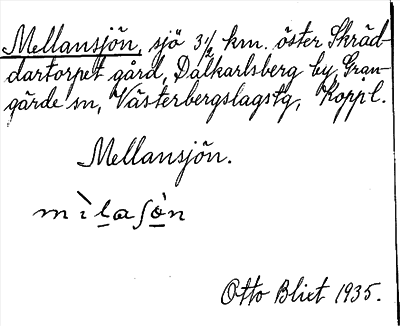 Mellansjön, sjö 3½ km. öster Skräd-
dartorpet gård, Dalkarlsberg by, Gran-
gärde sn, Västerbergslagstg, Koppl.
Mellansjön.
Otto Blixt 1935.